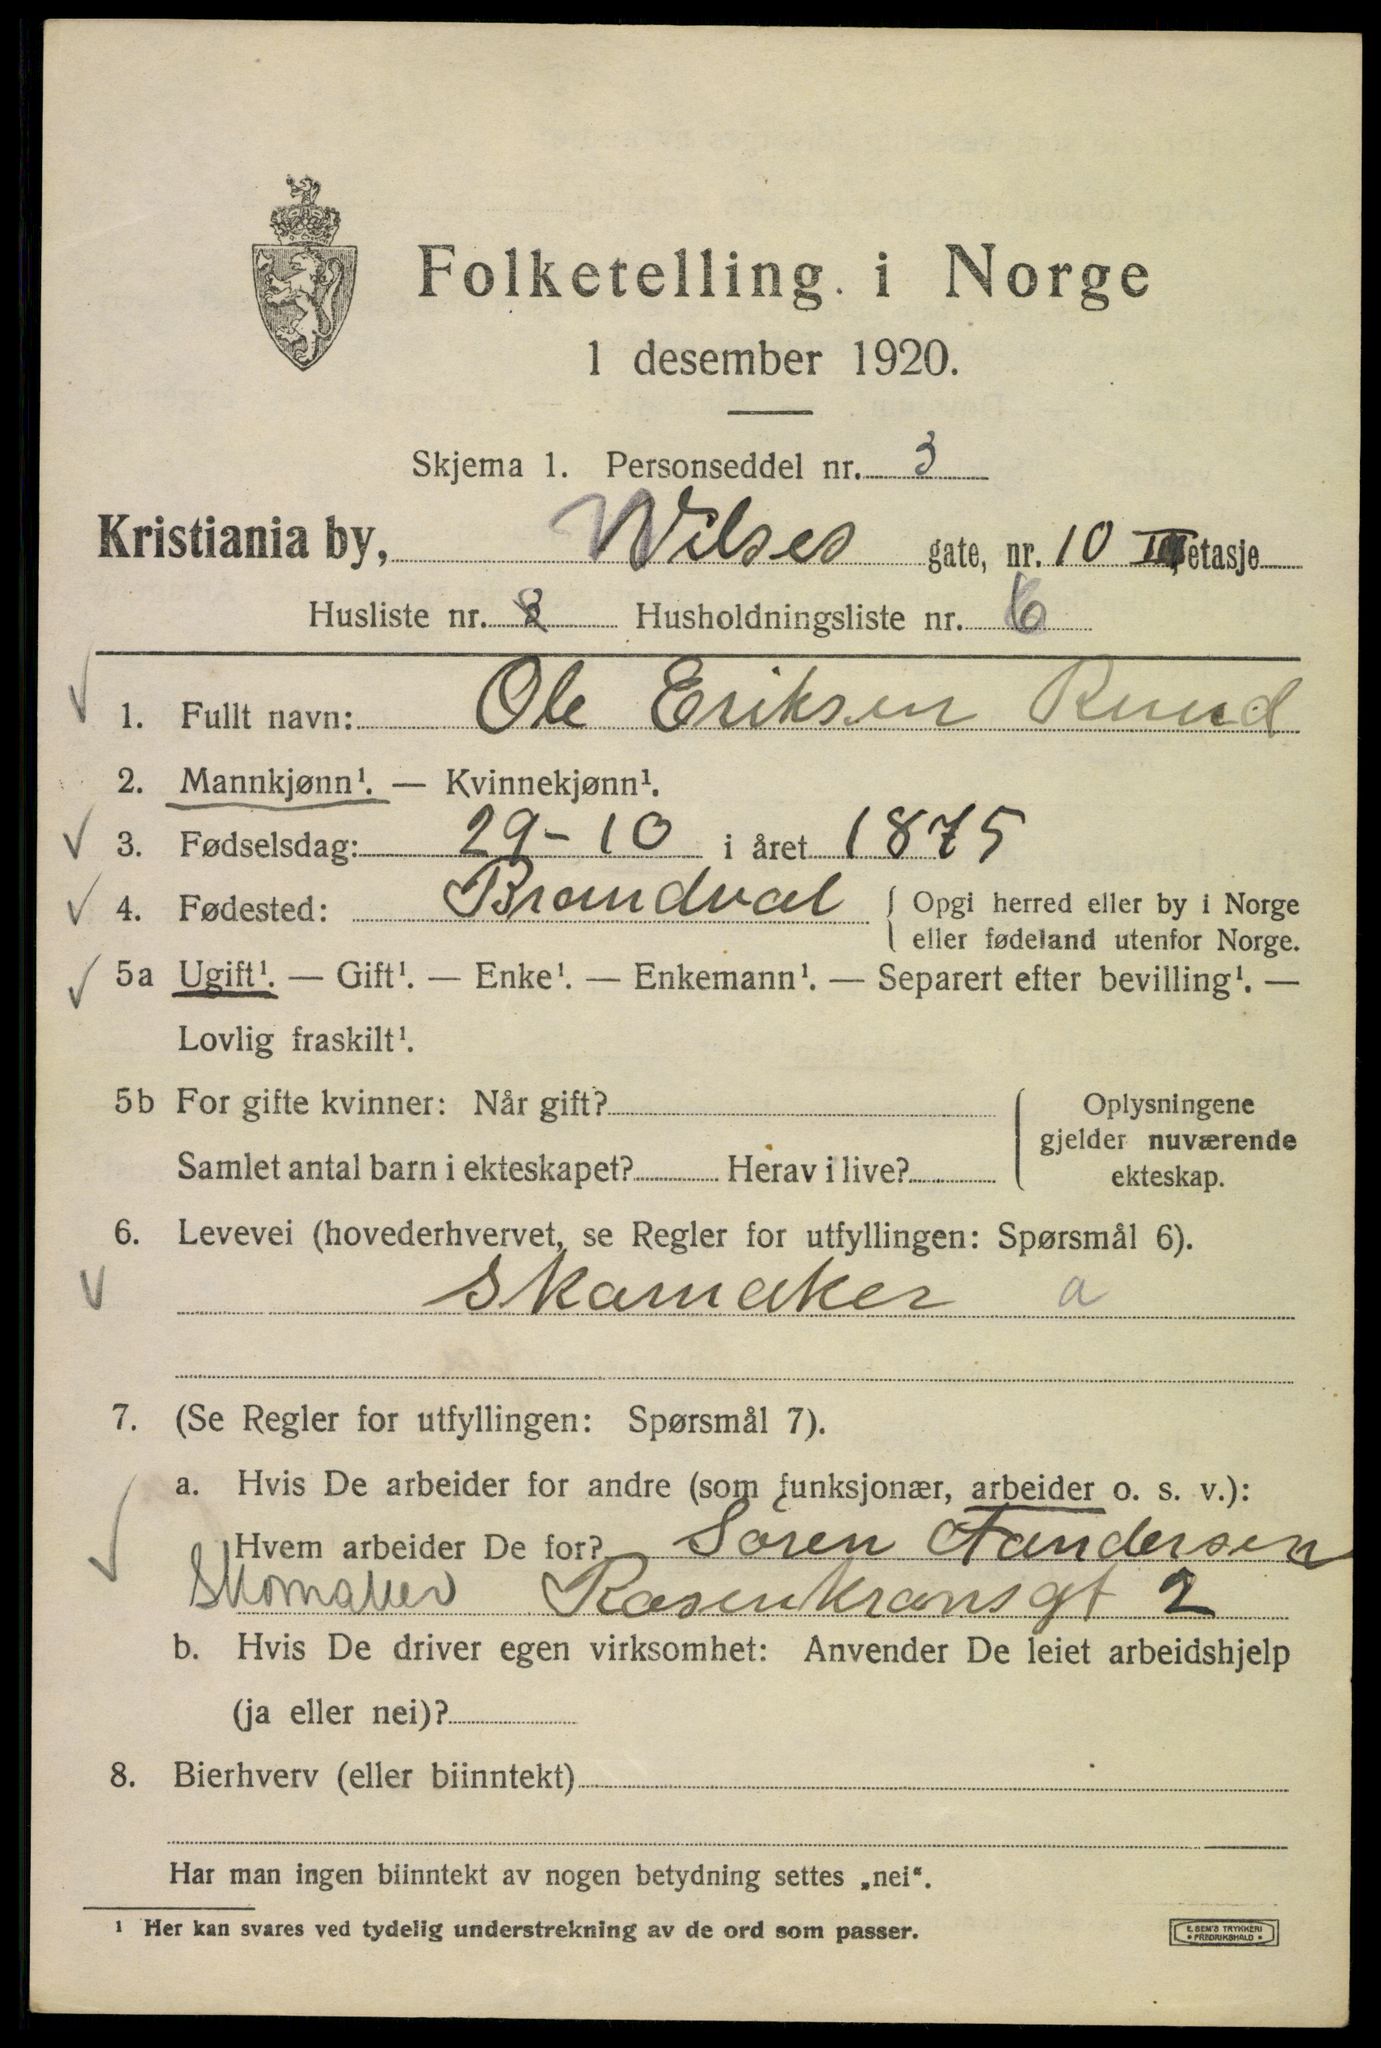 Folketelling i Norge
1 desember 1920.
Skjema 1. Personseddel nr. 3
Kristiania by, Wilses gate, nr. 10 III etasje
Husliste nr. 2 Husholdningsliste nr. 6
1. Fullt navn: Ole Eriksen Ruud
2. Mannkjønn¹. — Kvinnekjønn¹.
3. Fødselsdag: 29-10 i året 1875
4. Fødested: Brandval { Opgi herred eller by i Norge
eller fødeland utenfor Norge.
5a Ugift¹. — Gift¹. — Enke¹. — Enkemann¹. — Separert efter bevilling¹. —
Lovlig fraskilt¹.
5b For gifte kvinner: Når gift? { Oplysningene
gjelder nuværende
Samlet antal barn i ekteskapet? Herav i live? ekteskap.
6. Levevei (hovederhvervet, se Regler for utfyllingen: Spørsmål 6).
Skomaker a
7. (Se Regler for utfyllingen: Spørsmål 7).
a. Hvis De arbeider for andre (som funksjonær, arbeider o. s. v.):
Hvem arbeider De for? Sören
Skomaker Rosenkransgt 2
b. Hvis De driver egen virksomhet: Anvender De leiet arbeidshjelp
(ja eller nei)?
8. Bierhverv (eller biinntekt)
Har man ingen biinntekt av nogen betydning settes „nei“.
¹ Her kan svares ved tydelig understrekning av de ord som passer.
E. SEM'S TRYKKERI
• FREDRIKSHALD •